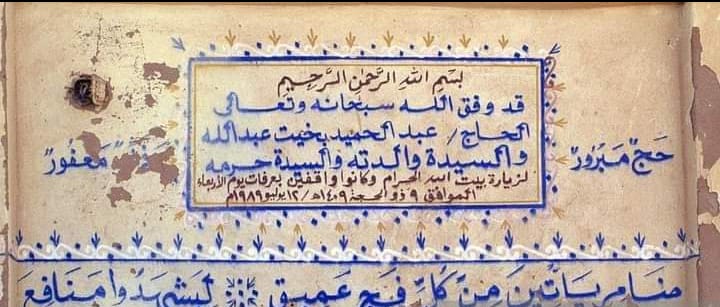 بسم الله الرحمن الرحيم
قد وفق الله سبحانه وتعالى
الحاج / عبد الحميد بخيت عبد الله
والسيدة والدته والسيدة حرمه
لزيارة بيت الله الحرام وكانوا واقفين بعرفات يوم الأربعاء
الموافق ٩ ذو الحجة ١٤٠٩هـ / ١٢ يوليو ١٩٨٩م
حَجٌّ مَبْرُورٌ
مغفورٌ
يَأْتِينَ مِنْ كُلِّ فَجٍّ عَمِيقٍ لِيَشْهَدُوا مَنَافِعَ